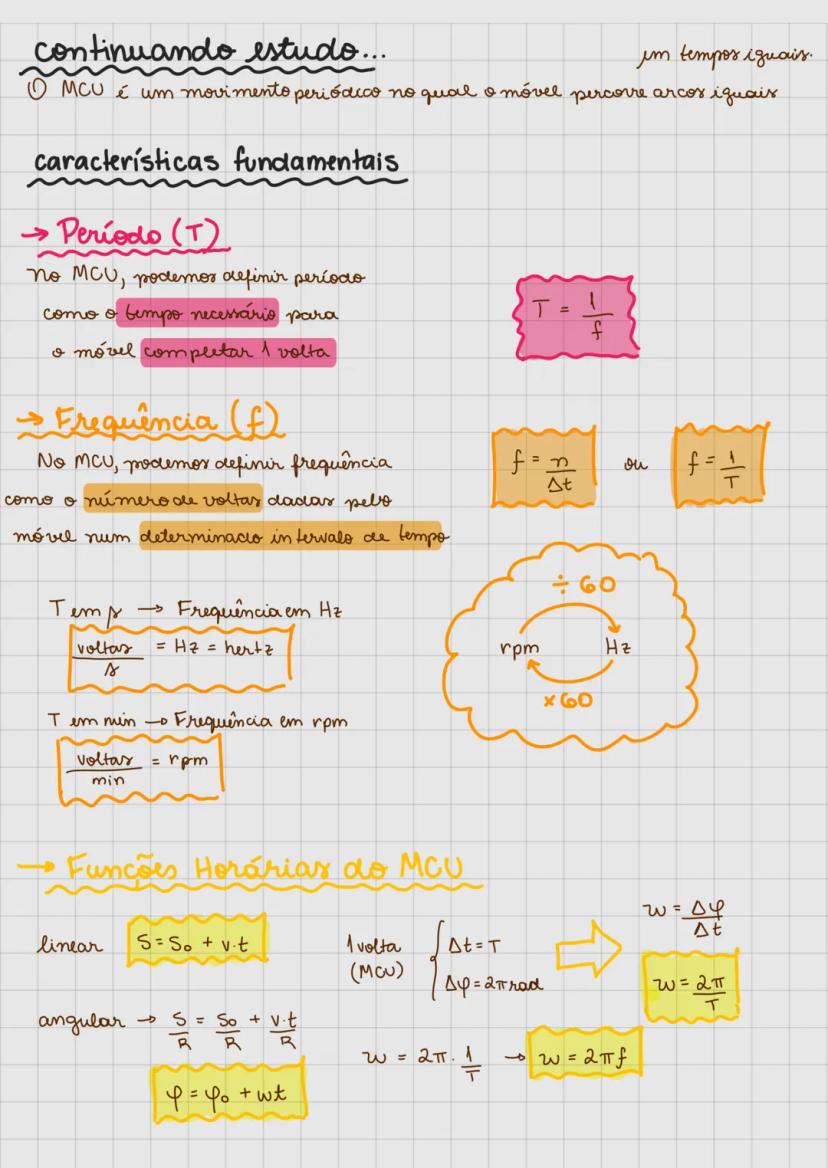 continuando estudo...
① MCU é um movimento periódico no qual o móvel percorre arcos iguais
em tempos iguais.
características fundamentais
→ Período (T)
No MCU, podemos definir período
como o tempo necessário para
o móvel completar 1 volta
T = 1/f
→ Frequência (f)
No MCU, podemos definir frequência
como o número de voltas dadas pelo
móvel num determinado intervalo de tempo
f = n/Δt ou f = 1/T
T em s → Frequência em Hz
voltas/s = Hz = hertz
T em min → Frequência em rpm
voltas/min = rpm
÷ 60
rpm Hz
×60
→ Funções Horárias do MCU
linear S = S₀ + v.t
angular → S/R = S₀/R + v.t/R
φ = φ₀ + wt
1 volta
(MCU)
{ Δt = T
Δφ = 2π rad
w = Δφ/Δt
w = 2π/T
w = 2π . 1/T → w = 2πf